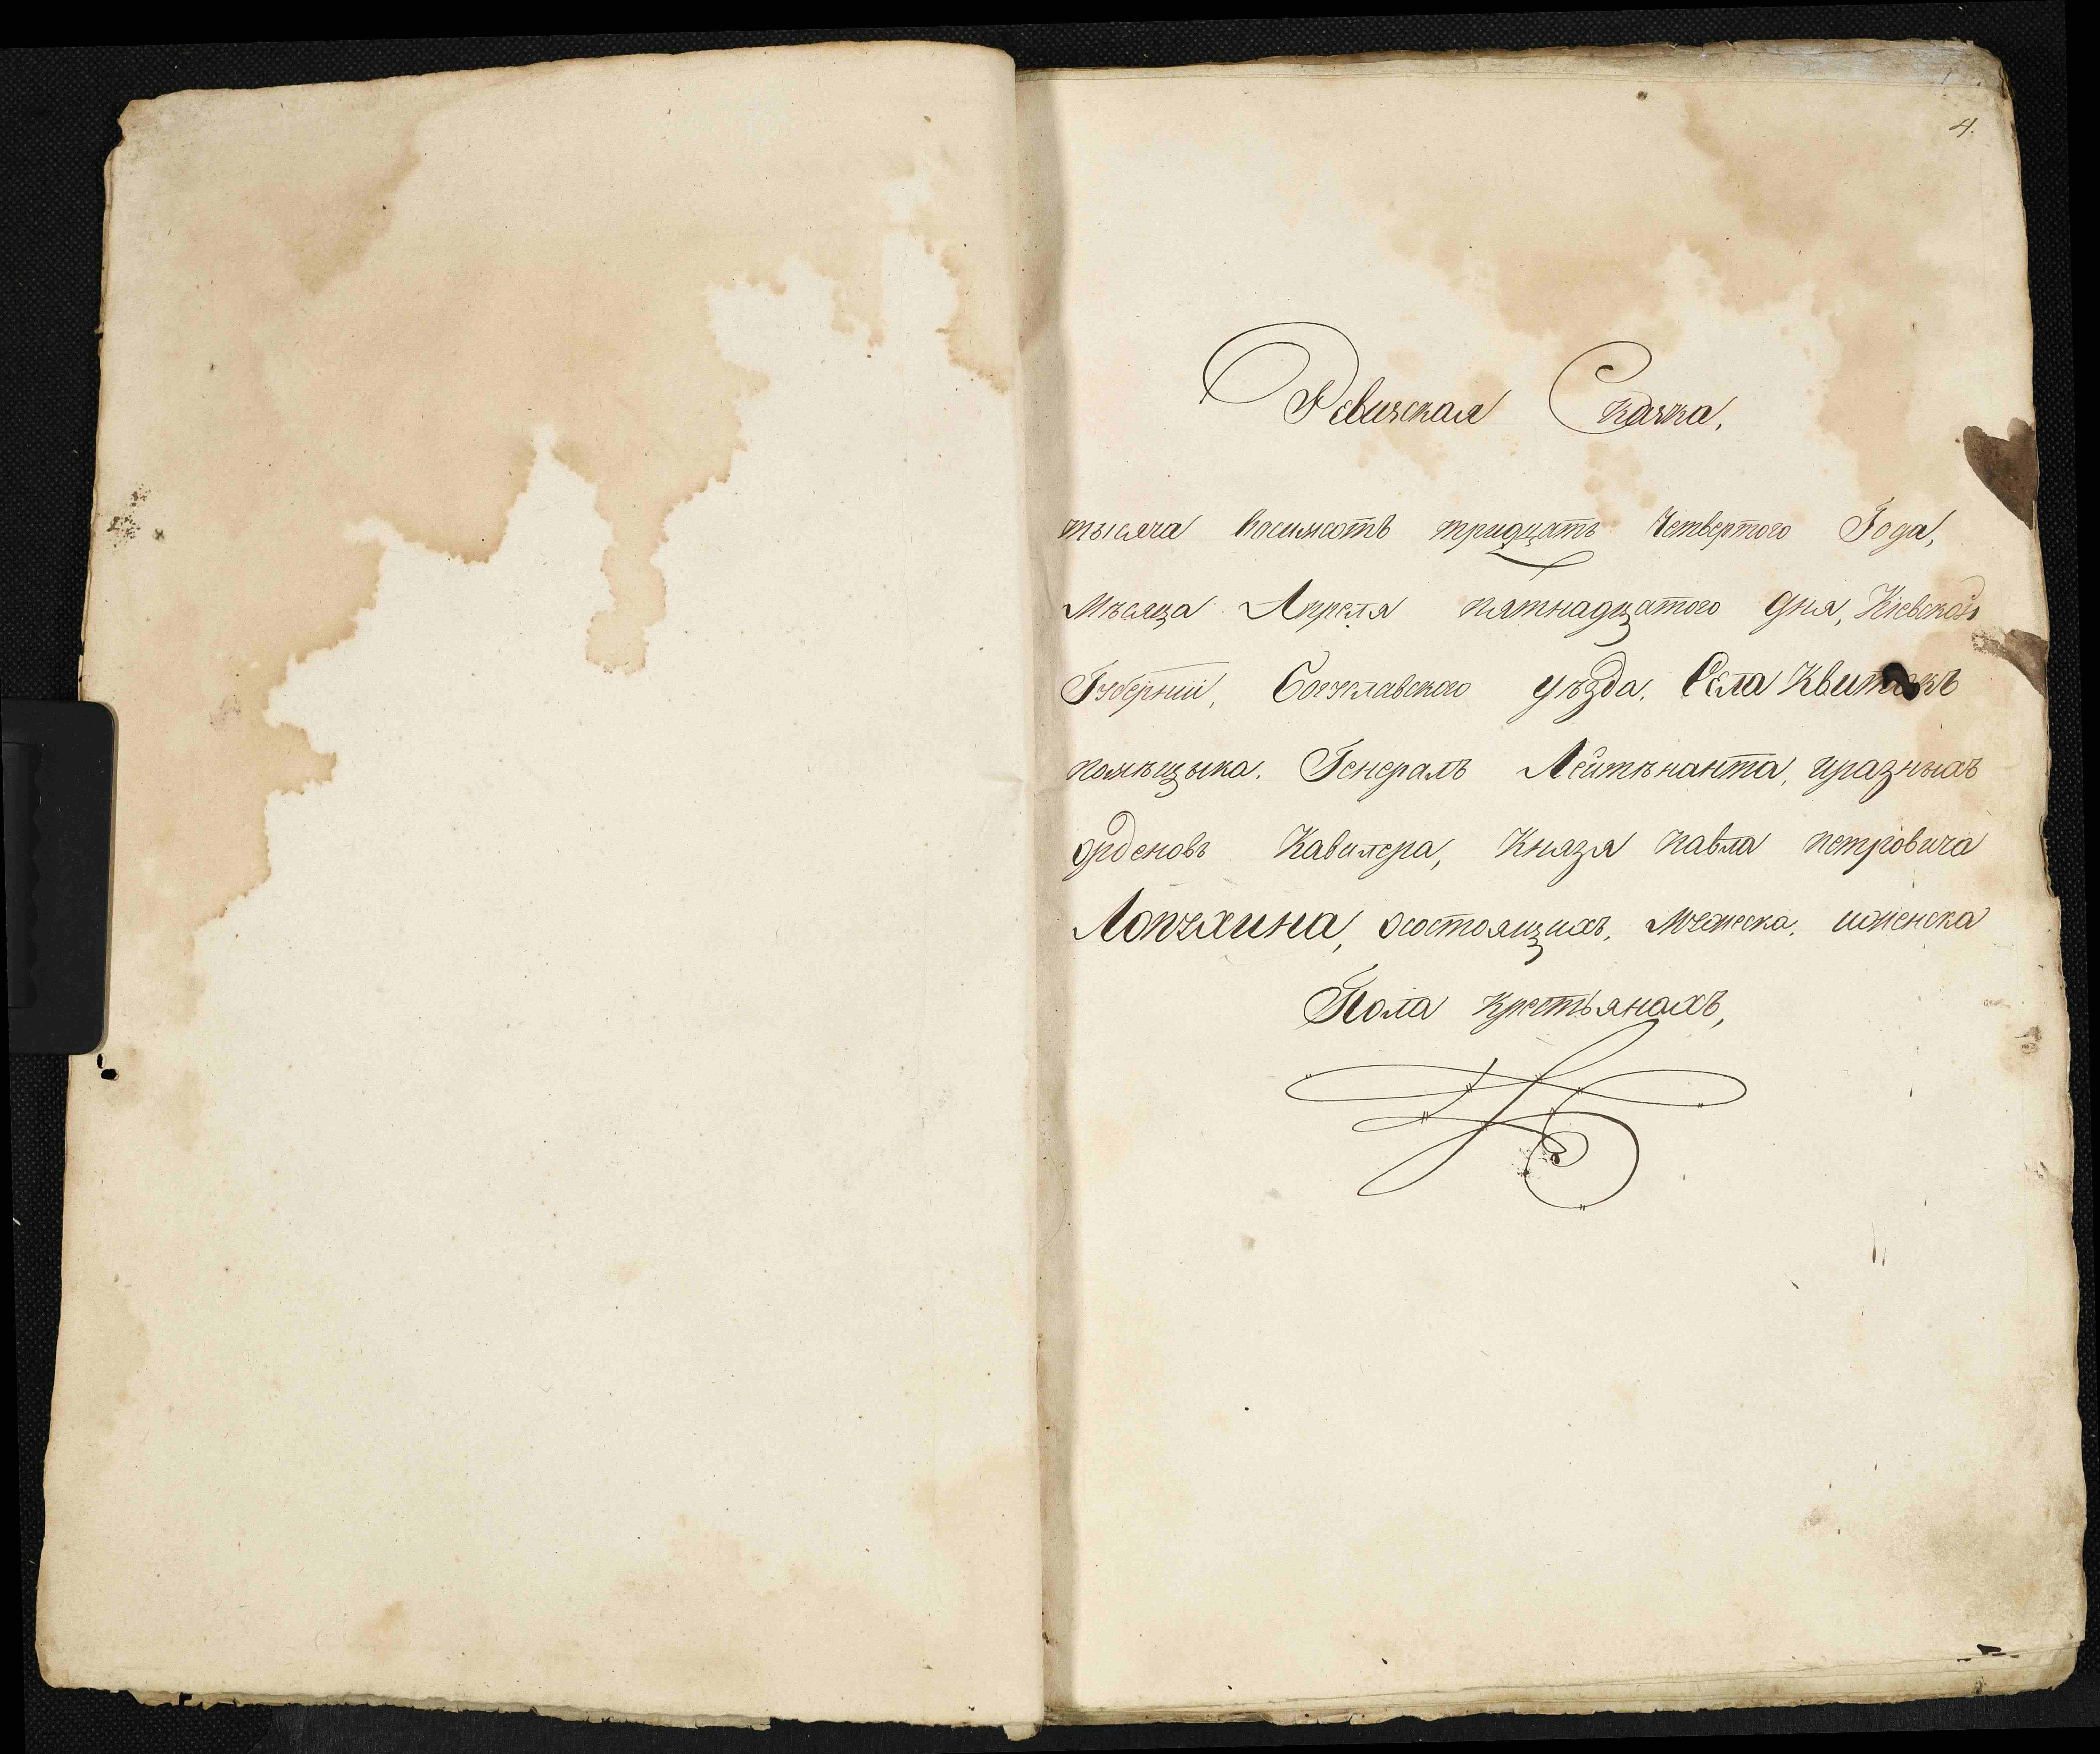 4.
Ревизская Сказка,
тысяча восимсотъ тридцать Четвертого Года,
Мѣсяца Апреля пятнадцатого дня, Кіевской
Губерніи, Богуславского уѣзда. Села Квитокъ
помѣщыка. Генералъ Лейтѣнанта, иразныхъ
орденовъ Кавалера, Князя павла петровича
Лопухина, осостоящихъ, Мужеска, иженска
Пола крестьянахъ,